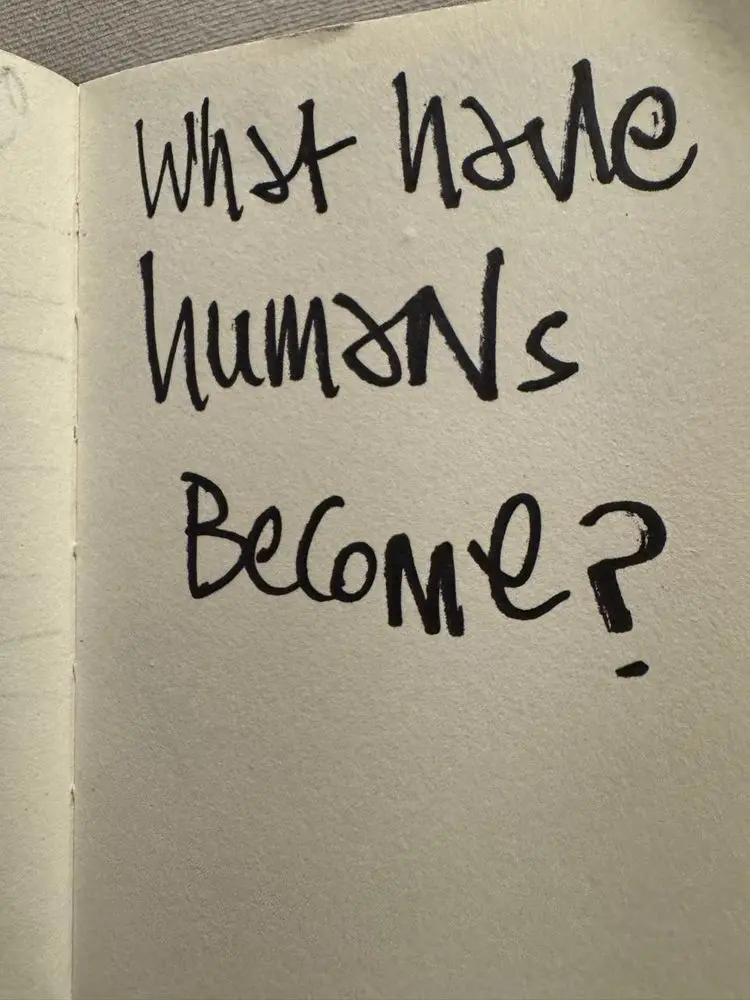 What have
humans
Become?